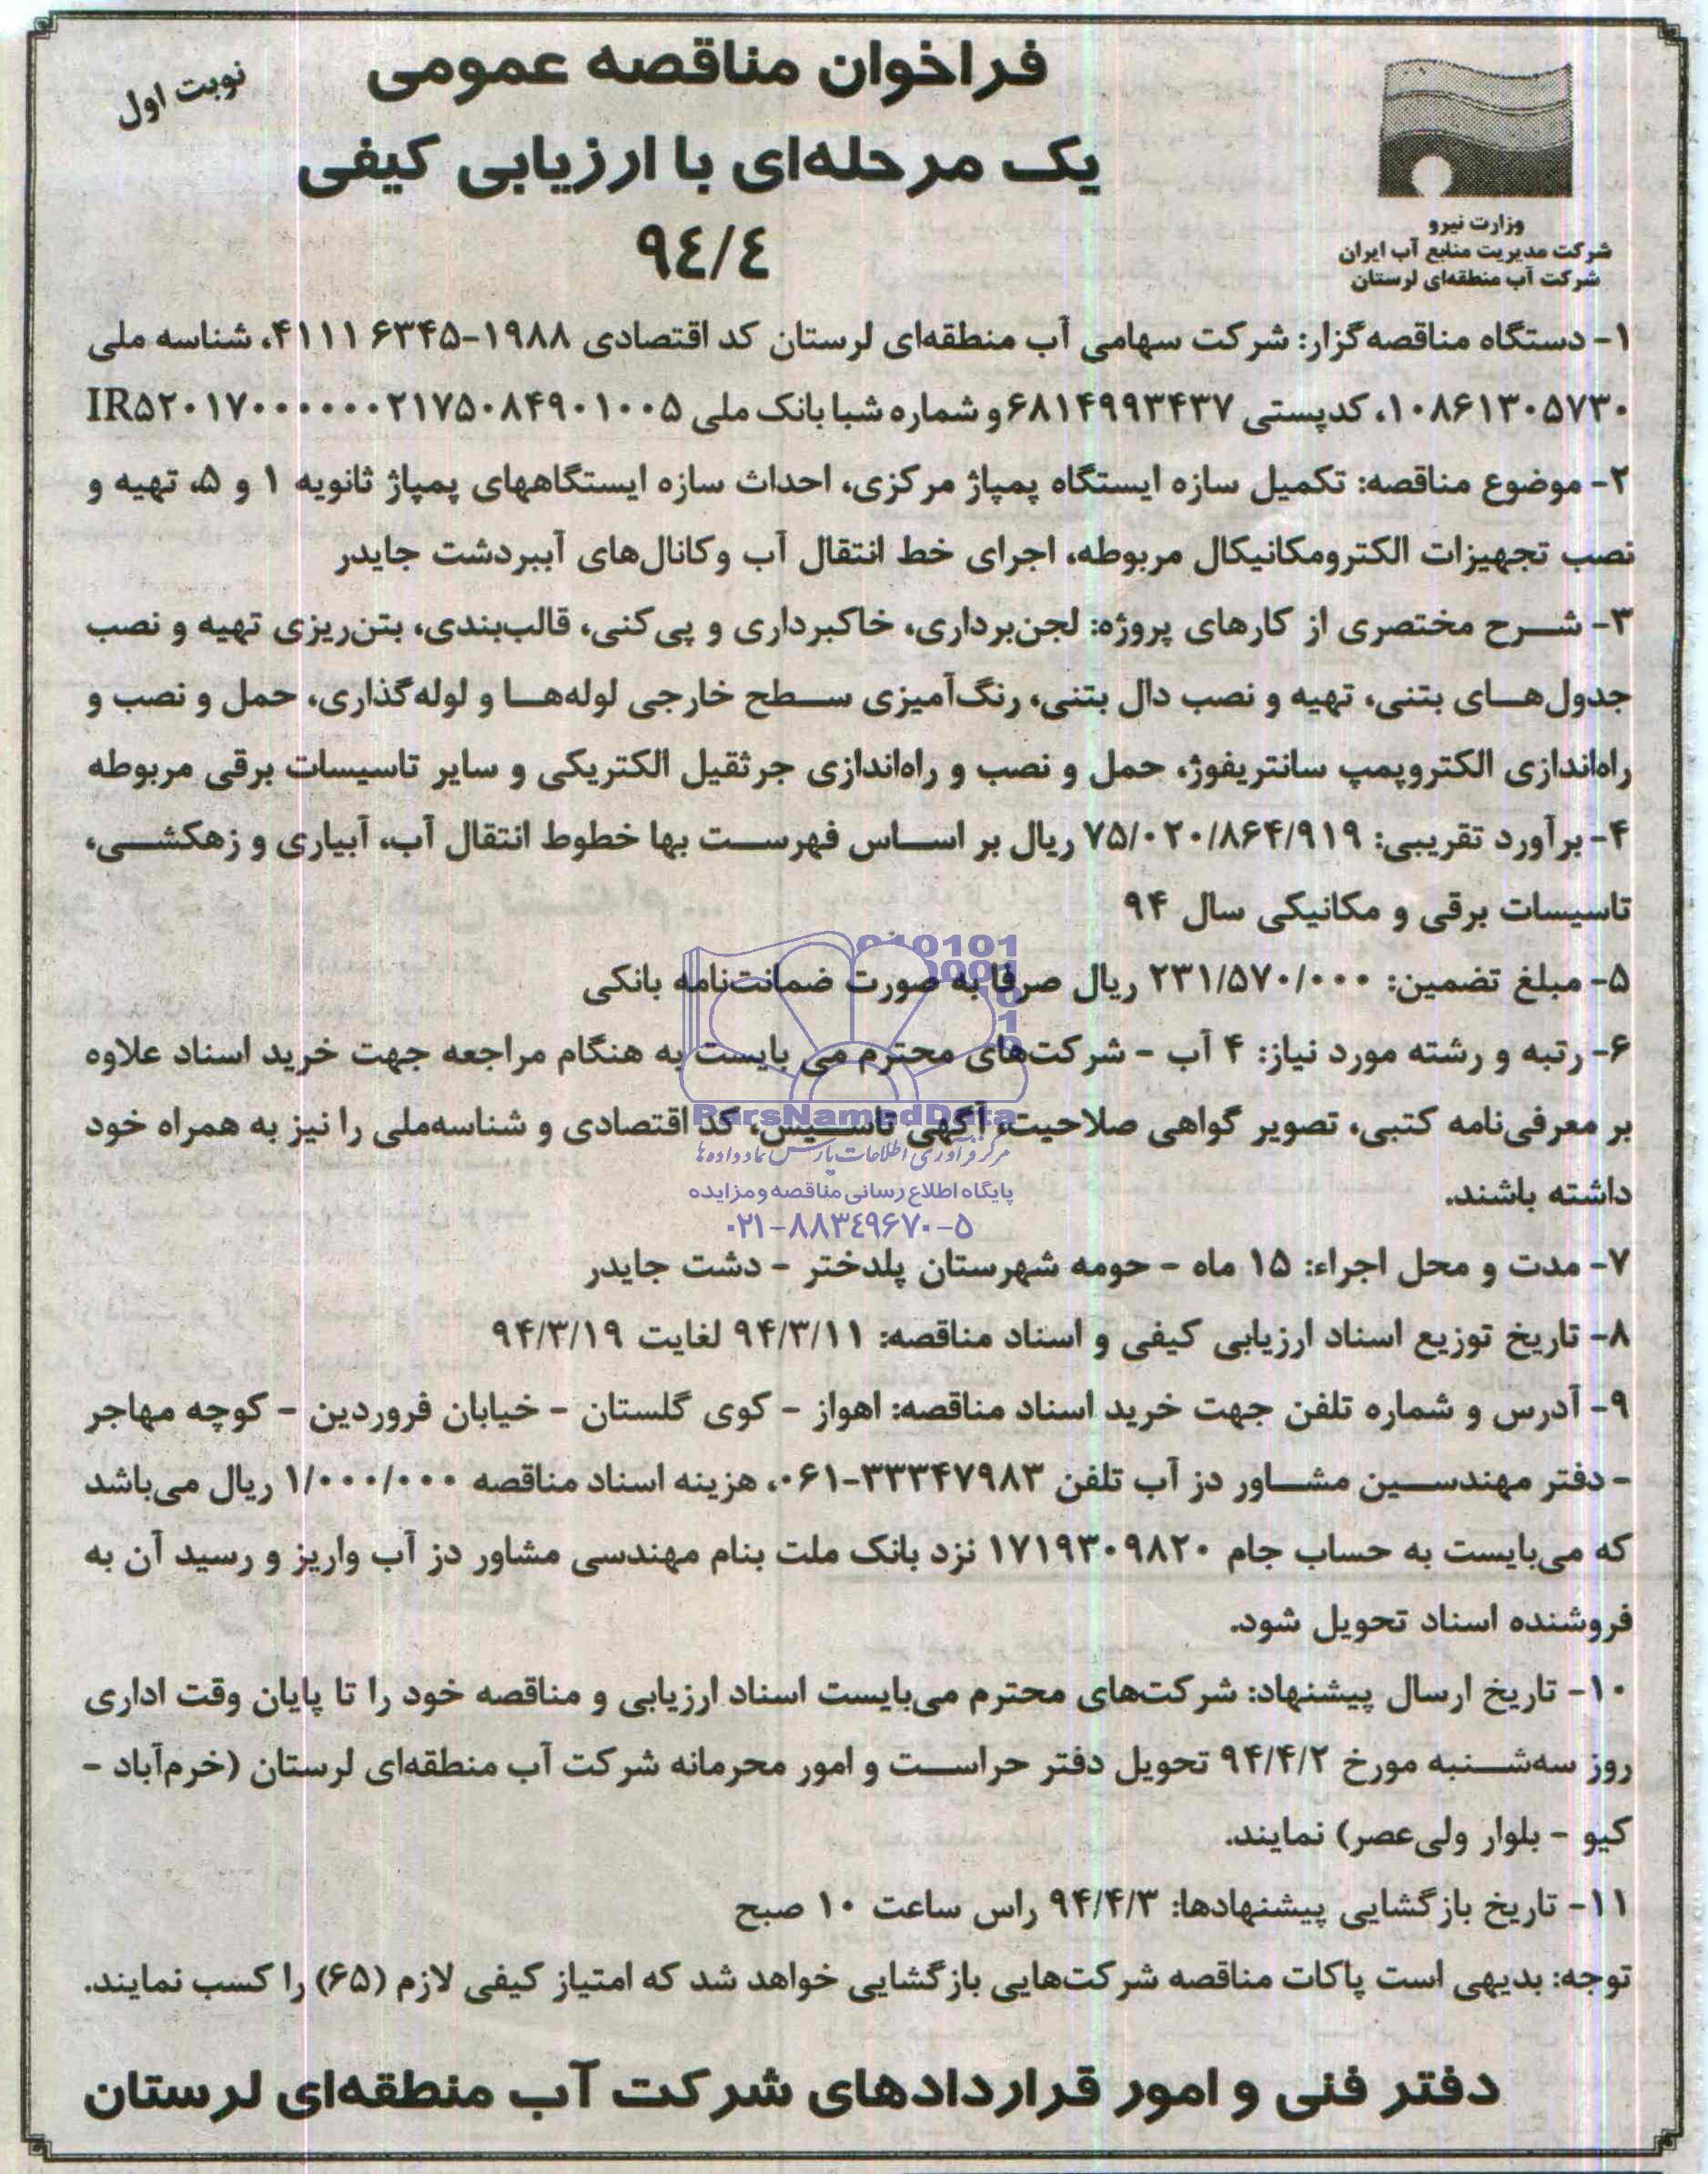 نوبت اول
فراخوان مناقصه عمومی
یک مرحله‌ای با ارزیابی کیفی
۹٤/٤
وزارت نیرو
شرکت مدیریت منابع آب ایران
شرکت آب منطقه‌ای لرستان
۱- دستگاه مناقصه‌گزار: شرکت سهامی آب منطقه‌ای لرستان کد اقتصادی ۱۹۸۸-۶۳۴۵ ۴۱۱۱، شناسه ملی
۱۰۸۶۱۳۰۵۷۳۰، کدپستی ۶۸۱۴۹۹۳۴۳۷ و شماره شبا بانک ملی IR۵۲۰۱۷۰۰۰۰۰۰۰۲۱۷۵۰۸۴۹۰۱۰۰۵
۲- موضوع مناقصه: تکمیل سازه ایستگاه پمپاژ مرکزی، احداث سازه ایستگاههای پمپاژ ثانویه ۱ و ۵، تهیه و
نصب تجهیزات الکترومکانیکال مربوطه، اجرای خط انتقال آب وکانال‌های آببردشت جایدر
۳- شرح مختصری از کارهای پروژه: لجن‌برداری، خاکبرداری و پی‌کنی، قالب‌بندی، بتن‌ریزی تهیه و نصب
جدول‌های بتنی، تهیه و نصب دال بتنی، رنگ‌آمیزی سطح خارجی لوله‌ها و لوله‌گذاری، حمل و نصب و
راه‌اندازی الکتروپمپ سانتریفوژ، حمل و نصب و راه‌اندازی جرثقیل الکتریکی و سایر تاسیسات برقی مربوطه
۴- برآورد تقریبی: ۷۵/۰۲۰/۸۶۴/۹۱۹ ریال بر اساس فهرست بها خطوط انتقال آب، آبیاری و زهکشی،
تاسیسات برقی و مکانیکی سال ۹۴
۵- مبلغ تضمین: ۲۳۱/۵۷۰/۰۰۰ ریال صرفا به صورت ضمانت‌نامه بانکی
۶- رتبه و رشته مورد نیاز: ۴ آب - شرکت‌های محترم می بایست به هنگام مراجعه جهت خرید اسناد علاوه
بر معرفی‌نامه کتبی، تصویر گواهی صلاحیت، آگهی تاسیس، کد اقتصادی و شناسه‌ملی را نیز به همراه خود
داشته باشند.
ParsNamadData
مرکز فرآوری اطلاعات پارس نماد داده ها
پایگاه اطلاع رسانی مناقصه و مزایده
۰۲۱-۸۸۳٤۹۶۷۰-۵
۷- مدت و محل اجراء: ۱۵ ماه - حومه شهرستان پلدختر - دشت جایدر
۸- تاریخ توزیع اسناد ارزیابی کیفی و اسناد مناقصه: ۹۴/۳/۱۱ لغایت ۹۴/۳/۱۹
۹- آدرس و شماره تلفن جهت خرید اسناد مناقصه: اهواز - کوی گلستان - خیابان فروردین - کوچه مهاجر
- دفتر مهندسین مشاور دز آب تلفن ۳۳۳۴۷۹۸۳-۰۶۱، هزینه اسناد مناقصه ۱/۰۰۰/۰۰۰ ریال می‌باشد
که می‌بایست به حساب جام ۱۷۱۹۳۰۹۸۲۰ نزد بانک ملت بنام مهندسی مشاور دز آب واریز و رسید آن به
فروشنده اسناد تحویل شود.
۱۰- تاریخ ارسال پیشنهاد: شرکت‌های محترم می‌بایست اسناد ارزیابی و مناقصه خود را تا پایان وقت اداری
روز سه‌شنبه مورخ ۹۴/۴/۲ تحویل دفتر حراست و امور محرمانه شرکت آب منطقه‌ای لرستان (خرم‌آباد -
کیو - بلوار ولی‌عصر) نمایند.
۱۱- تاریخ بازگشایی پیشنهادها: ۹۴/۴/۳ راس ساعت ۱۰ صبح
توجه: بدیهی است پاکات مناقصه شرکت‌هایی بازگشایی خواهد شد که امتیاز کیفی لازم (۶۵) را کسب نمایند.
دفتر فنی و امور قراردادهای شرکت آب منطقه‌ای لرستان